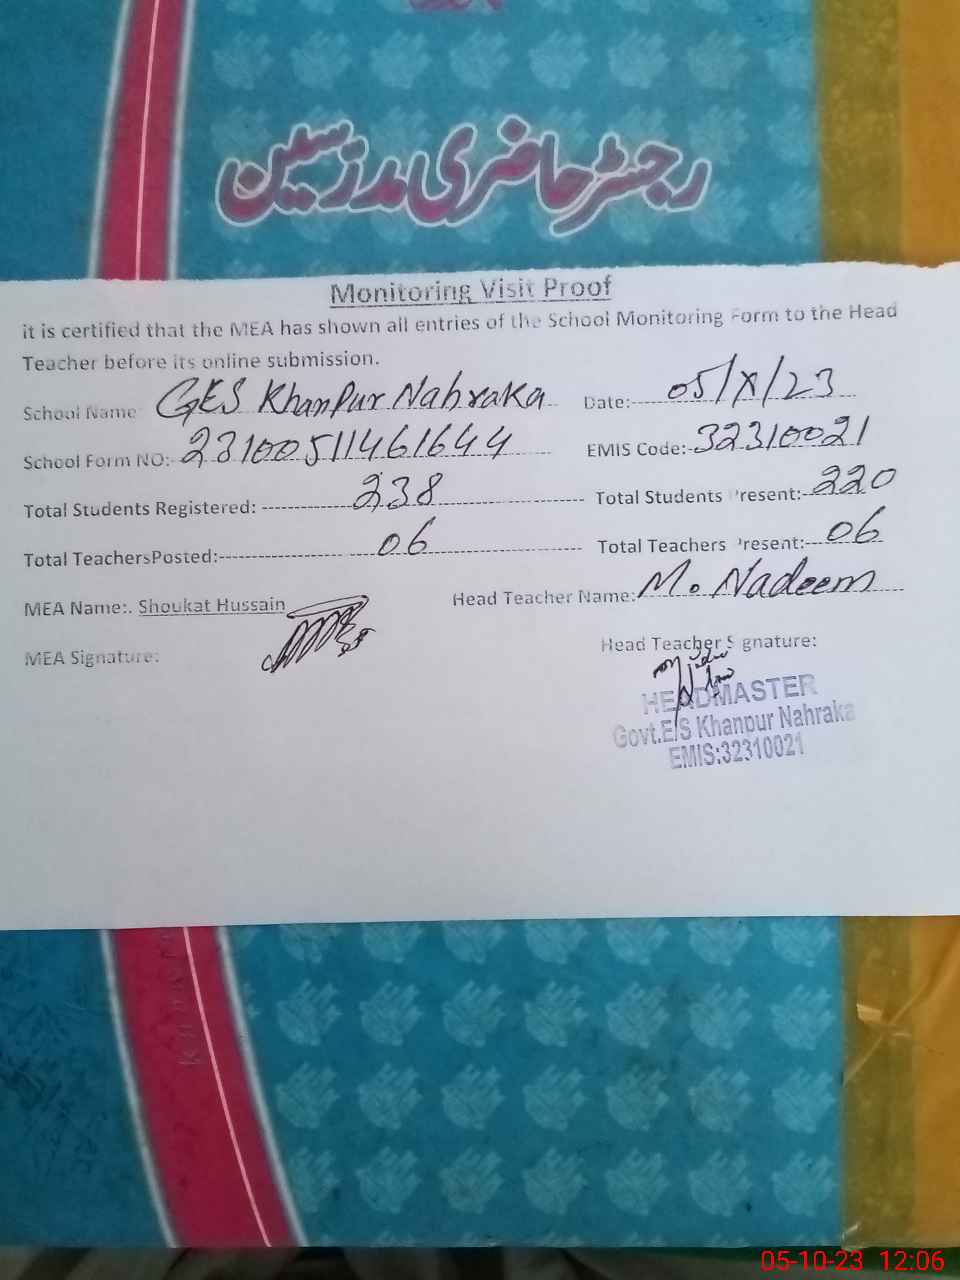 رجسٹر حاضری مدرسین
Monitoring Visit Proof
it is certified that the MEA has shown all entries of the School Monitoring Form to the Head
Teacher before its online submission.
School Name GES Khanpur Nahraka Date: 05/X/23
School Form NO: 23100511461644 EMIS Code: 32310021
Total Students Registered: 238 Total Students Present: 220
Total TeachersPosted: 06 Total Teachers Present: 06
MEA Name:. Shoukat Hussain Head Teacher Name: M. Nadeem
MEA Signature: Head Teacher Signature:
HEADMASTER
Govt.E/S Khanpur Nahraka
EMIS:32310021
05-10-23 12:06